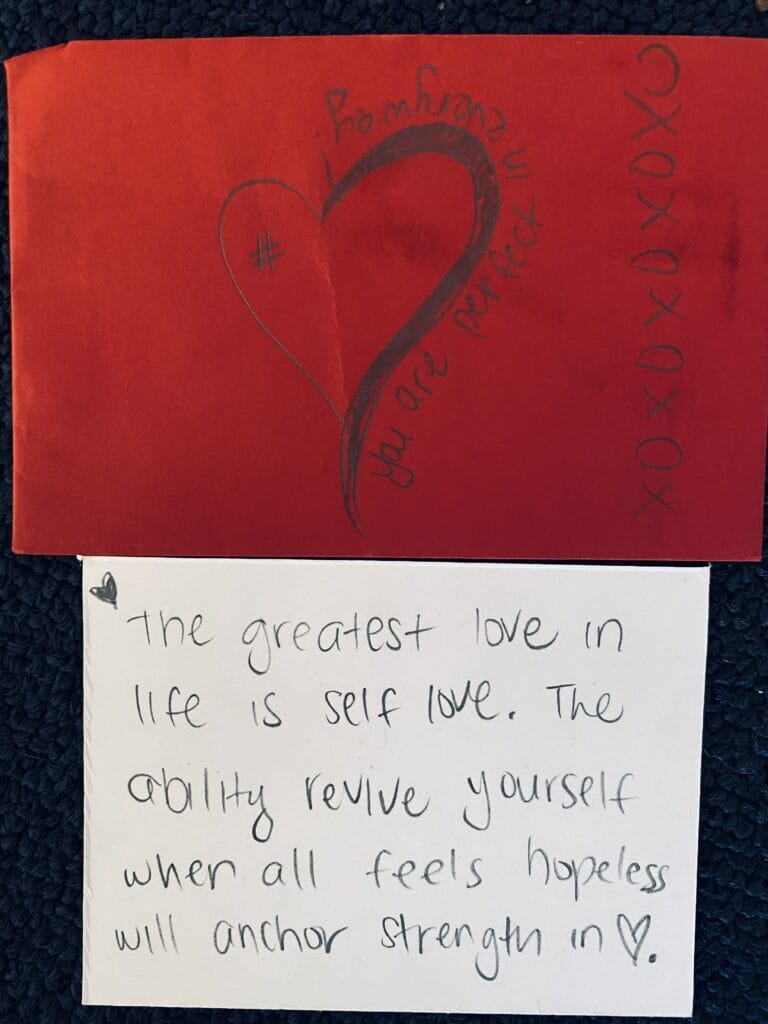 #
you are perfect in everyway!
XOXOXOXOXO
The greatest love in
life is self love. The
ability revive yourself
when all feels hopeless
will anchor strength in ♡.